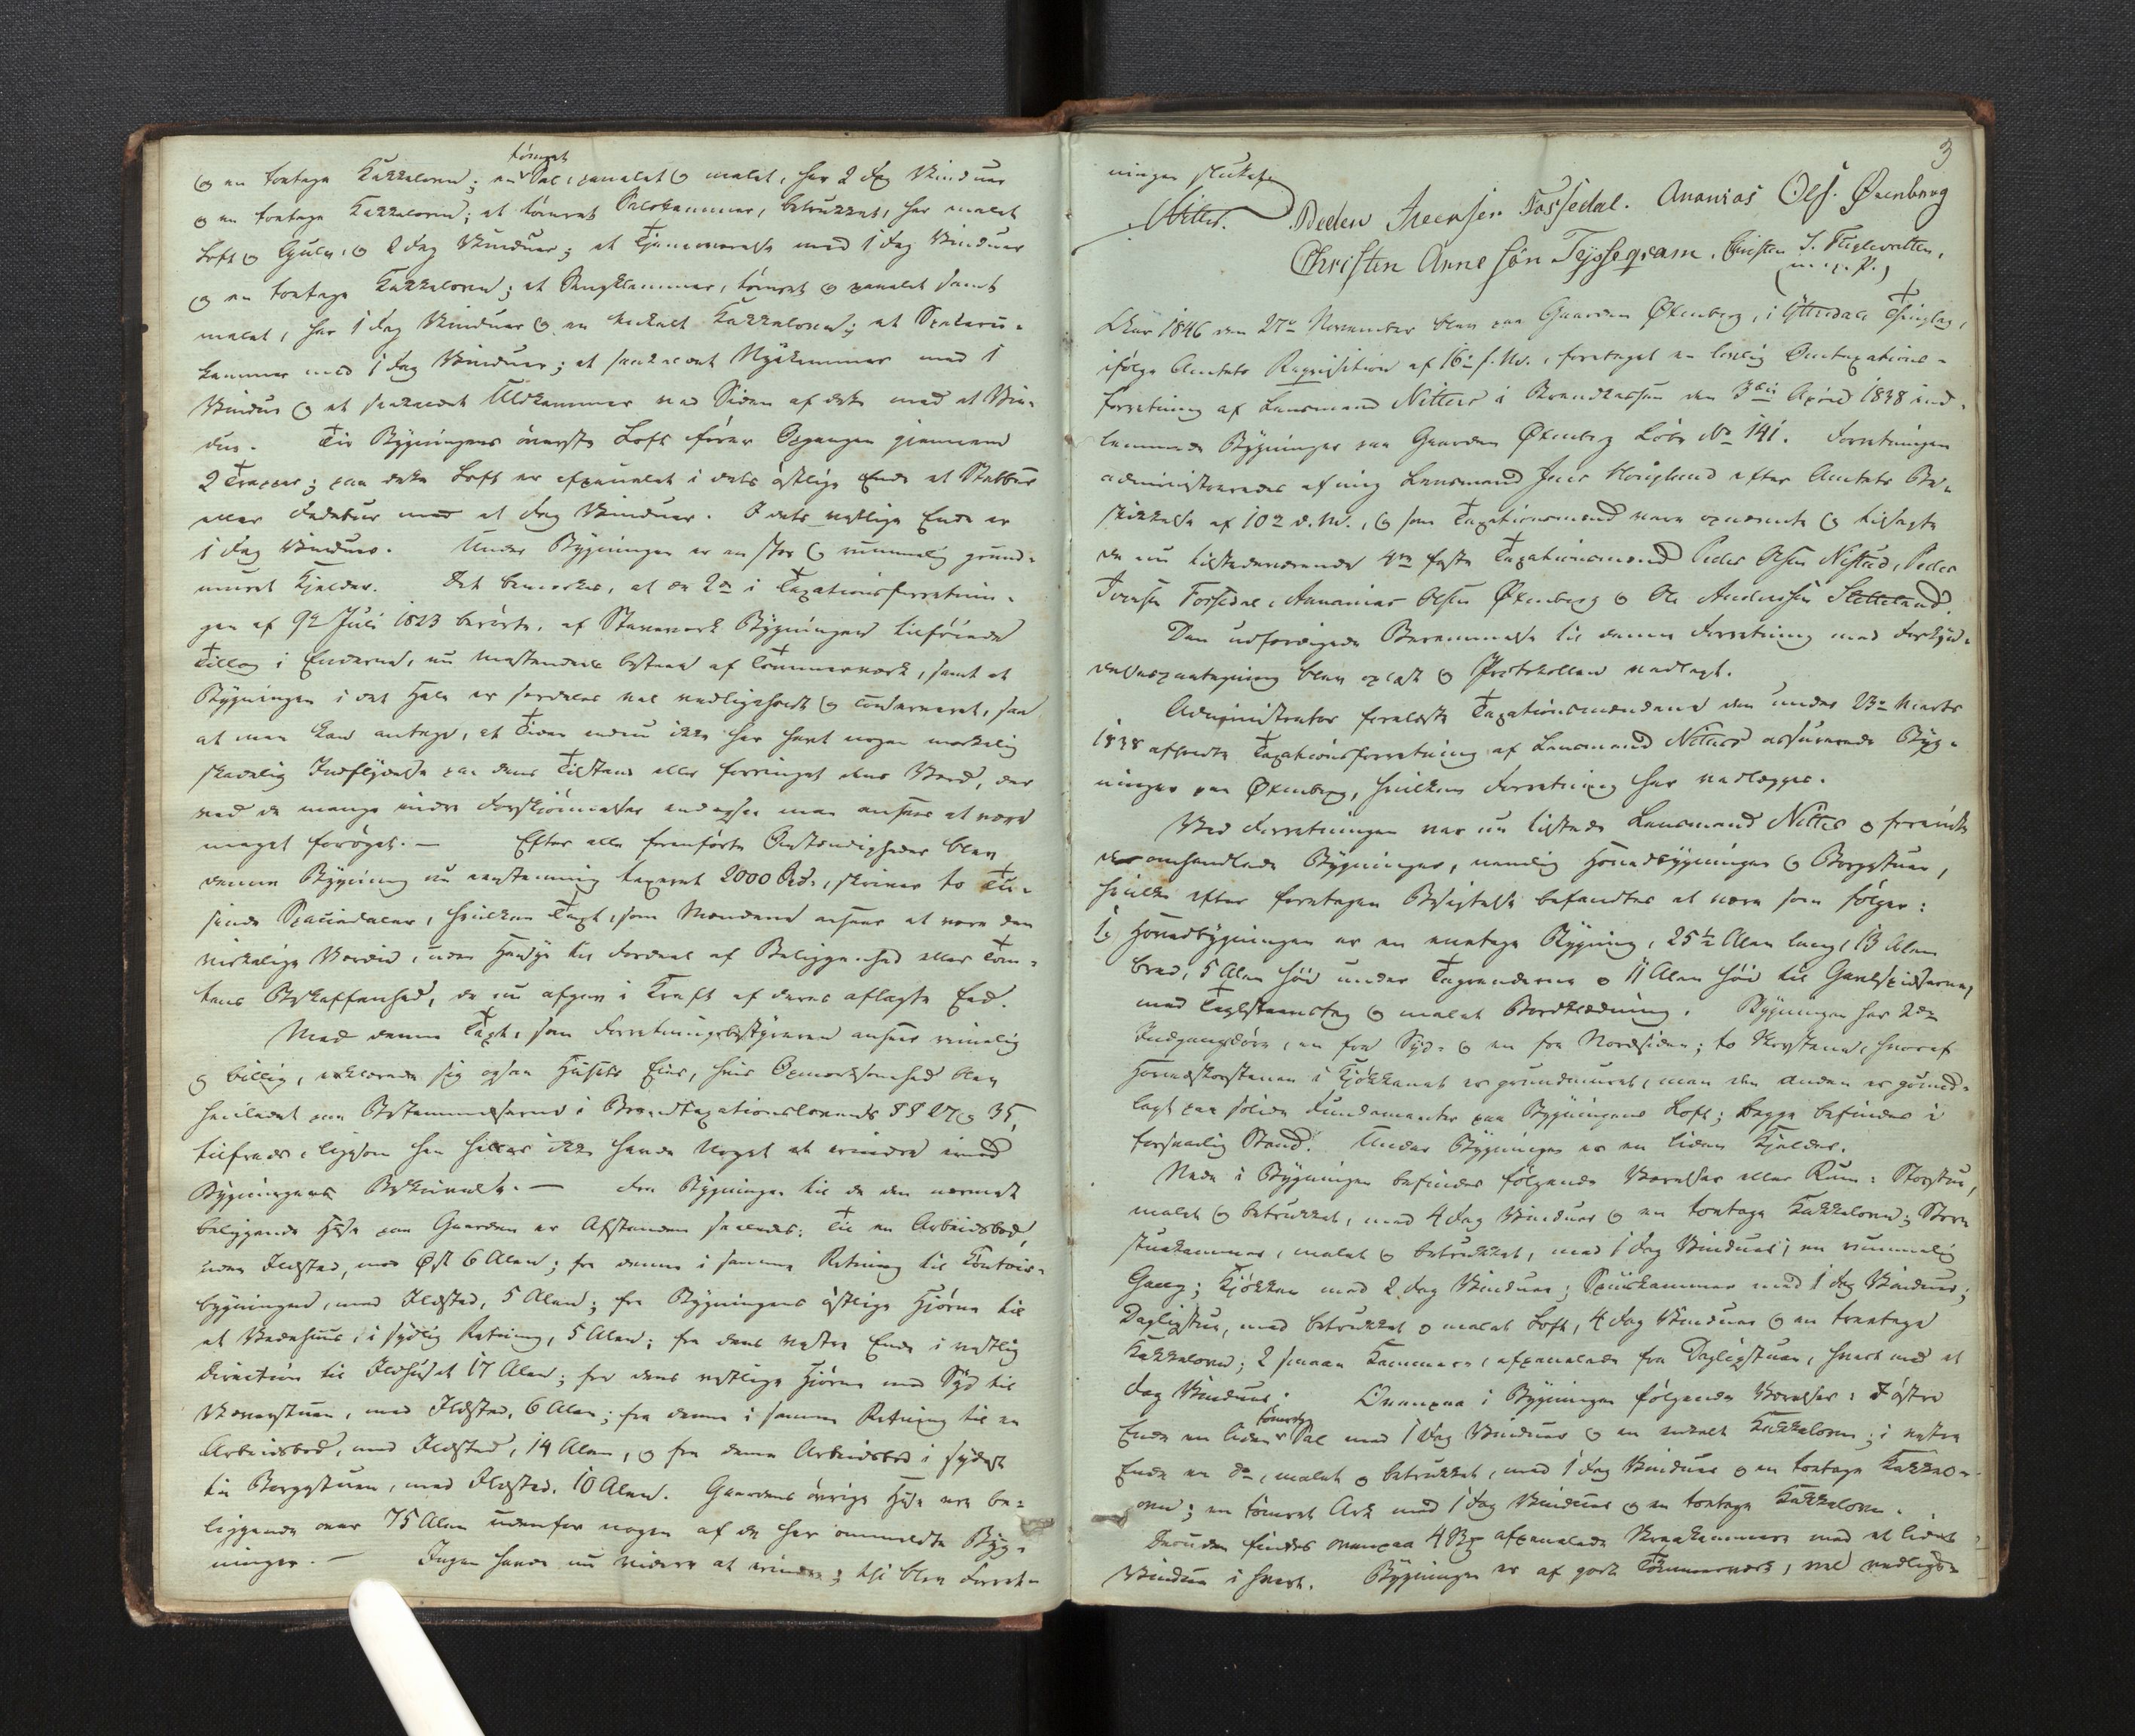 og en toetages Kakkelovn; en tømret Sal, panelet og malet, har 2 Fag Vinduer
og en toetages Kakkelovn; et tømret Salskammer, betrukket, har malet
Loft og Gulv, og 2 Fag Vinduer; et med 1 Fag Vinduer
og en toetages Kakkelovn; et Sengkammer, tømret og panelet samt
malet, har 1 Fag Vinduer og en enkelt Kakkelovn; et
kammer med 1 Fag Vinduer; et saakaldet Nykammer med 1
Vindue og et saakaldet Uldkammer ved Siden af dette med et Vin-
due. Til Bygningens øverste Loft fører Opgangen gjennem
2 Trapper; paa dette Loft er afpanelet i dets østlige Ende et Stabbur
eller Fadebur med et Fag Vinduer. I dets vestlige Ende er
1 Fag Vinduer. Under Bygningen er en stor og rummelig grund-
muret Kjelder. Det bemærkes, at de 2de i Taxationsforretnin-
gen af 9de Juli 1823 berørte, af Stavværk Bygningen tilføiede
Tillæg i Enderne, nu bestaae af Tømmerværk, samt at
Bygningen i det Hele er særdeles vel vedligeholdt og conserveret, saa
at man kan antage, at Tiden endnu ikke har havt nogen mærkelig
skadelig Indflydelse paa dens Tilstand eller forringet dens Værd, der
ved de mange indre Forskjønnelser endogsaa maa ansees at være
meget forøget. — Efter alle fremførte Omstændigheder blev
denne Bygning nu eenstemmig taxeret 2000 Spd., skriver to Tu-
sinde Speciedaler, hvilken Taxt, som Mændene ansaae at være den
virkelige Værdie, uden Hensyn til Fordeel af Beliggenhed eller Tom-
tens Beskaffenhed, de nu afgave i Kraft af deres aflagte Eed.
Med denne Taxt, som Forretningsbestyreren ansaae rimelig
og billig, erklærede sig ogsaa Husets Eier, hvis Opmærksomhed blev
henledet paa Bestemmelserne i Brandtaxationslovens §§ 27 og 35,
tilfreds, ligesom han heller ikke havde Noget at erindre imod
Bygningens Beskrivelse. — Fra Bygningen til de den nærmest
beliggende Huse paa Gaarden er Afstanden saaledes: Til en Arbeidsbod,
uden Ildsted, mod Øst 6 Alen; fra denne i samme Retning til Contoir-
bygningen, med Ildsted, 5 Alen; fra Bygningens østlige Hjørne til
et Vedehuus, i sydlig Retning, 5 Alen; fra dens vestre Ende i vestlig
Direction til Ildhuset 17 Alen; fra dens vestlige Hjørne mod Syd til
Væverstuen, med Ildsted, 6 Alen; fra denne i samme Retning til en
Arbeidsbod, med Ildsted, 14 Alen, og fra denne Arbeidsbod i Sydost
til Borgestuen, med Ildsted, 10 Alen. Gaardens øvrige Huse ere be-
liggende over 75 Alen udenfor nogen af de her ommeldte Byg-
ninger. — Ingen havde nu videre at erindre; thi blev Forret-
3
ningen sluttet.
Nitter. Peder Iversen Fossedal. Ananias Ols. Øxenberg
Christen Arnesøn Tyssequam. Christen J. Fuglevatten,
(m. p. P.)
Aar 1846 den 27de November blev paa Gaarden Øxenberg, i Yttredals Thinglag,
ifølge Amtets Reqvisition af 16de f. M., foretaget en lovlig Omtaxations-
forretning af Lensmand Nitters i Brandkassen den 3die April 1838 ind-
lemmede Bygninger paa Gaarden Øxenberg Løbe No 141. Forretningen
administreredes af mig Lensmand Jens Høuglund efter Amtets Be-
skikkelse af 10de d. M., og som Taxationsmænd vare opnævnte og tilsagte
de nu tilstedeværende 4re faste Taxationsmænd Peder Olsen Nistad, Peder
Iversen Fossedal, Annanias Olsen Øxenberg og Ole Andersen Sletteland.
Den udfærdigede Berammelse til denne Forretning med Forkyn-
delsespaategning blev oplæst og Protokollen vedlagt.
Administrator forelæste Taxationsmændene den under 23de Marts
1838 afholdte Taxationsforretning af Lensmand Nitters assurerede Byg-
ninger paa Øxenberg, hvilken Forretning her vedlægges.
Ved Forretningen var nu tilstede Lensmand Nitter og foreviste
de omhandlede Bygninger, nemlig Hovedbygningen og Borgestuen,
hvilke efter foretagen Besigtelse befandtes at være som følger:
1) Hovedbygningen er en eenetages Bygning, 25½ Alen lang, 13 Alen
bred, 5 Alen høi under Tagrenderne og 11 Alen høi til Gavlspidserne,
med Teglsteenstag og malet Bordklædning. Bygningen har 2de
Indgangsdøre, en fra Syd- og en fra Nordsiden; to Skorstene, hvoraf
Hovedskorstenen i Kjøkkenet er grundmuret, men den anden er
lagt paa solide Fundamenter paa Bygningens Loft; begge befindes i
forsvarlig Stand. Under Bygningen er en liden Kjelder.
Nede i Bygningen befindes følgende Værelser eller Rum: Storstue,
malet og betrukket, med 4 Fag Vinduer og en toetages Kakkelovn; Stor-
stuekammer, malet og betrukket, med 1 Fag Vinduer; en rummelig
Gang; Kjøkken med 2 Fag Vinduer; Spiiskammer med 1 Fag Vinduer;
Dagligstue, med betrukket og malet Loft, 4 Fag Vinduer og en treetages
Kakkelovn; 2 smaae Kammere, afpanelede fra Dagligstuen, hvert med et
Fag Vinduer. Ovenpaa i Bygningen følgende Værelser: I østre
Ende en liden tømret Sal med 1 Fag Vinduer og en enkelt Kakkelovn; i vestre
Ende en do, malet og betrukket, med 1 Fag Vinduer og en toetages Kakkel-
ovn; en tømret Ark med 1 Fag Vinduer og en toetages Kakkelovn.
Desuden findes ovenpaa 4 afpanelede Skraakammere med et lidet
Vindue i hvert. Bygningen er af godt Tømmerværk, vel vedlige-